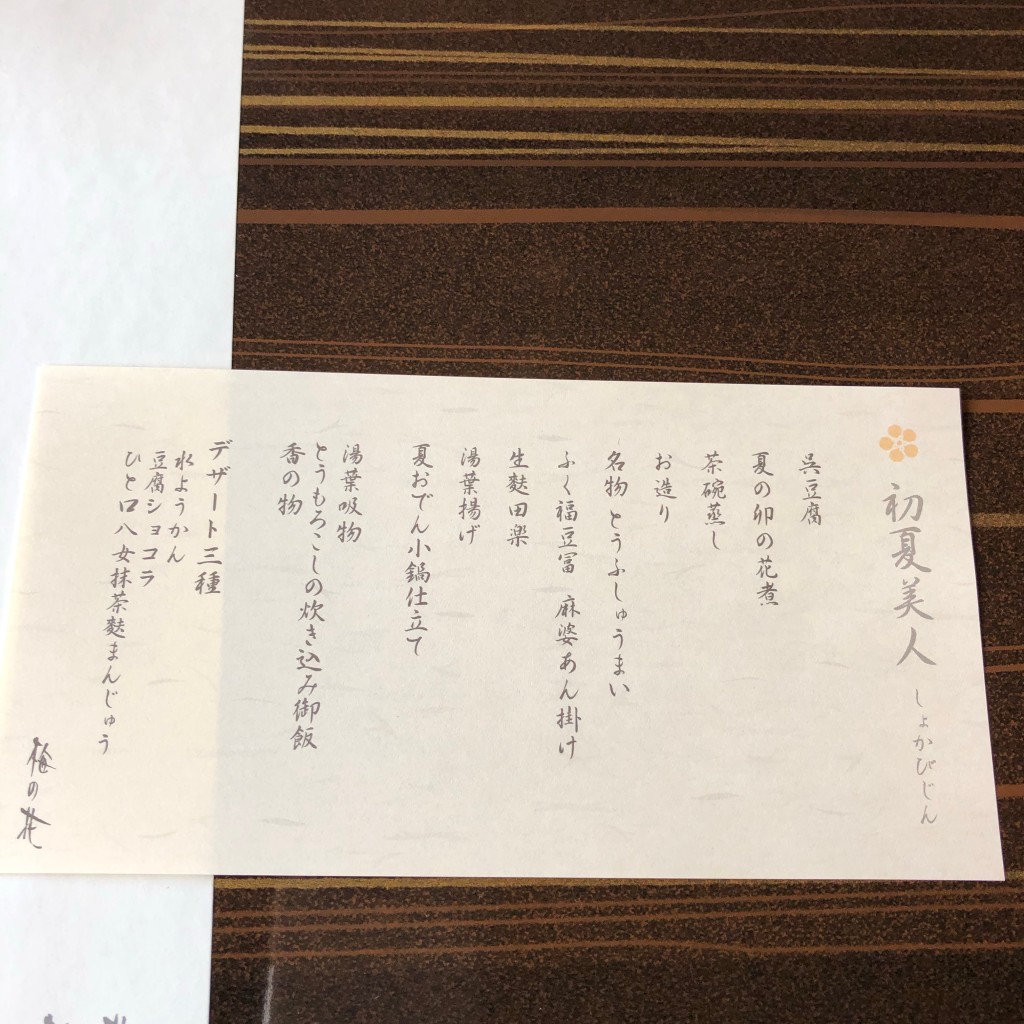 初夏美人 しょかびじん
呉豆腐
夏の卯の花煮
茶碗蒸し
お造り
名物 とうふしゅうまい
ふく福豆冨 麻婆あん掛け
生麩田楽
湯葉揚げ
夏おでん小鍋仕立て
湯葉吸物
とうもろこしの炊き込み御飯
香の物
デザート三種
水ようかん
豆腐ショコラ
ひと口八女抹茶麩まんじゅう
梅の花